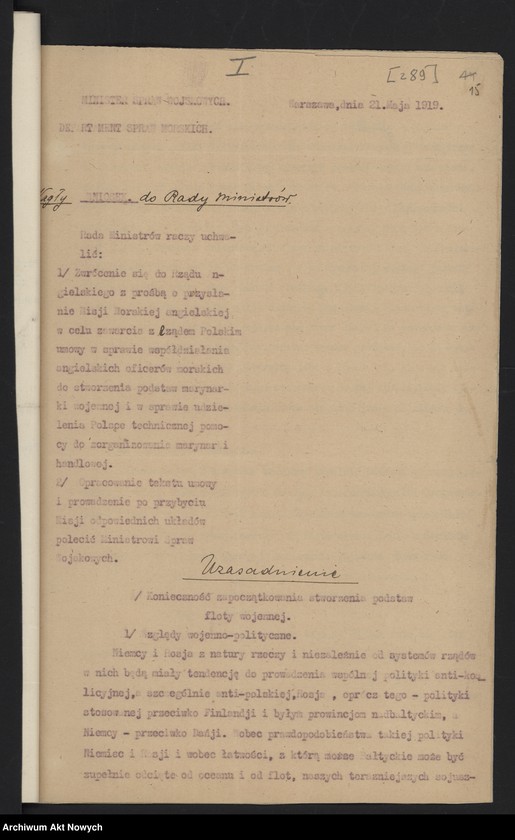 I
[289]
44
15
MINISTER SPRAW WOJSKOWYCH.
Warszawa,dnia 21.Maja 1919.
DEPARTAMENT SPRAW MORSKICH.
Nagły WNIOSEK. do Rady Ministrów.
Rada Ministrów raczy uchwa-
lić:
1/ Zwrócenie się do Rządu n-
gielskiego z prośbą o przysła-
nie Misji Morskiej angielskiej
w celu zawarcia z Rządem Polskim
umowy w sprawie współdziałania
angielskich oficerów morskich
do stworzenia podstaw marynar-
ki wojennej i w sprawie udzie-
lenia Polsce technicznej pomo-
cy do zorganizowania marynarki
handlowej.
2/ Opracowanie tekstu umowy
i prowadzenie po przybyciu
Misji odpowiednich układów
polecić Ministrowi Spraw
Wojskowych.
Uzasadnienie
/ Konieczność zapoczątkowania stworzenia podstaw
floty wojennej.
1/ Względy wojenno-polityczne.
Niemcy i Rosja z natury rzeczy i niezależnie od systemów rządów
w nich będą miały tendencję do prowadzenia wspólnej polityki anti-koa-
licyjnej,a szczególnie anti-polskiej,Rosja , oprócz tego - polityki
stosowanej przeciwko Finlandji i byłym prowincjom nadbałtyckim, a
Niemcy - przeciwko Danji. Wobec prawdopodobieństwa takiej polityki
Niemiec i Rosji i wobec łatwości, z którą morze Bałtyckie może być
zupełnie odcięte od oceanu i od flot, naszych teraźniejszych sojusz-
Archiwum Akt Nowych
Archiwum Akt Nowych